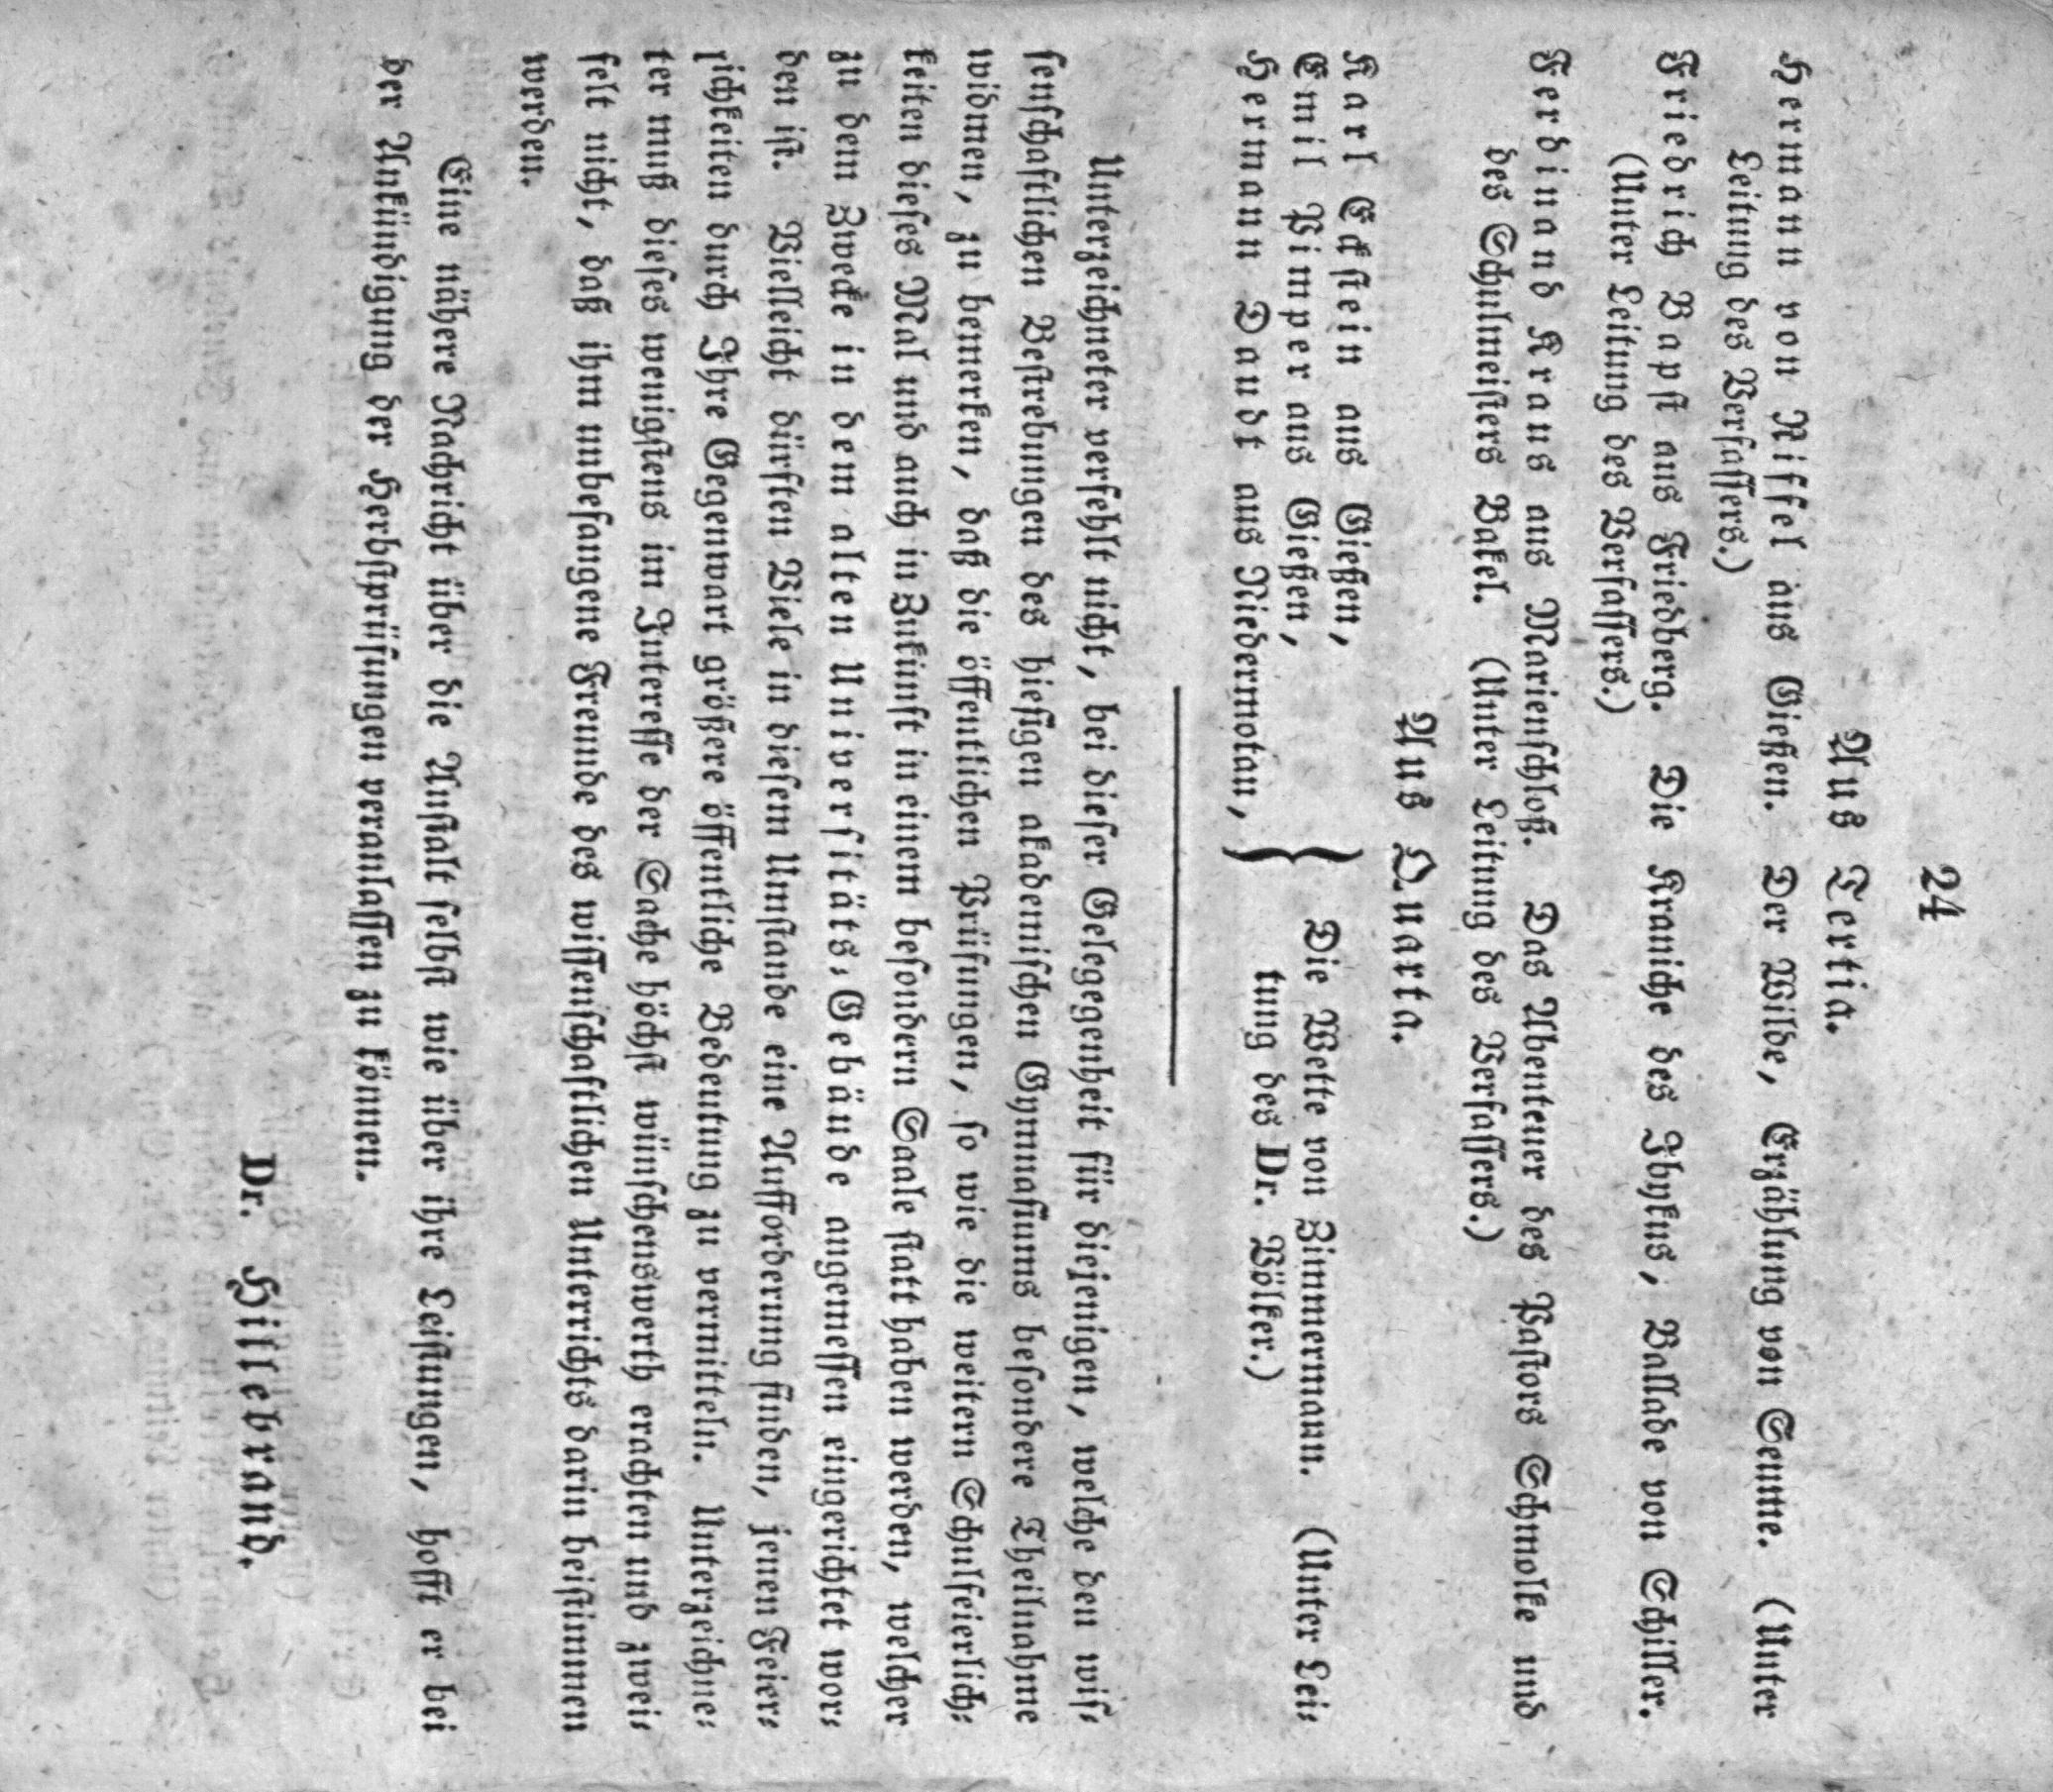 24
Aus Tertia.
Hermann von Riffel aus Gießen. Der Wilde, Erzählung von Seume. (Unter
Leitung des Verfassers.)
Friedrich Bapst aus Friedberg. Die Kraniche des Ibykus, Ballade von Schiller.
(Unter Leitung des Verfassers.)
Ferdinand Kraus aus Marienschloß. Das Abenteuer des Pastors Schmolke und
des Schulmeisters Bakel. (Unter Leitung des Verfassers.)
Aus Quarta.
Karl Eckstein aus Gießen,
Emil Pimper aus Gießen,
Hermann Daudt aus Niedermotau,
} Die Wette von Zimmermann. (Unter Lei-
tung des Dr. Völker.)
Unterzeichneter verfehlt nicht, bei dieser Gelegegenheit für diejenigen, welche den wis-
senschaftlichen Bestrebungen des hiesigen akademischen Gymnasiums besondere Theilnahme
widmen, zu bemerken, daß die öffentlichen Prüfungen, so wie die weitern Schulfeierlich-
keiten dieses Mal und auch in Zukunft in einem besondern Saale statt haben werden, welcher
zu dem Zwecke in dem alten Universitäts-Gebäude angemessen eingerichtet wor-
den ist. Vielleicht dürften Viele in diesem Umstande eine Aufforderung finden, jenen Feier-
lichkeiten durch Ihre Gegenwart größere öffentliche Bedeutung zu vermitteln. Unterzeichne-
ter muß dieses wenigstens im Interesse der Sache höchst wünschenswerth erachten und zwei-
felt nicht, daß ihm unbefangene Freunde des wissenschaftlichen Unterrichts darin beistimmen
werden.
Eine nähere Nachricht über die Anstalt selbst wie über ihre Leistungen, hofft er bei
der Ankündigung der Herbstprüfungen veranlassen zu können.
Dr. Hillebrand.